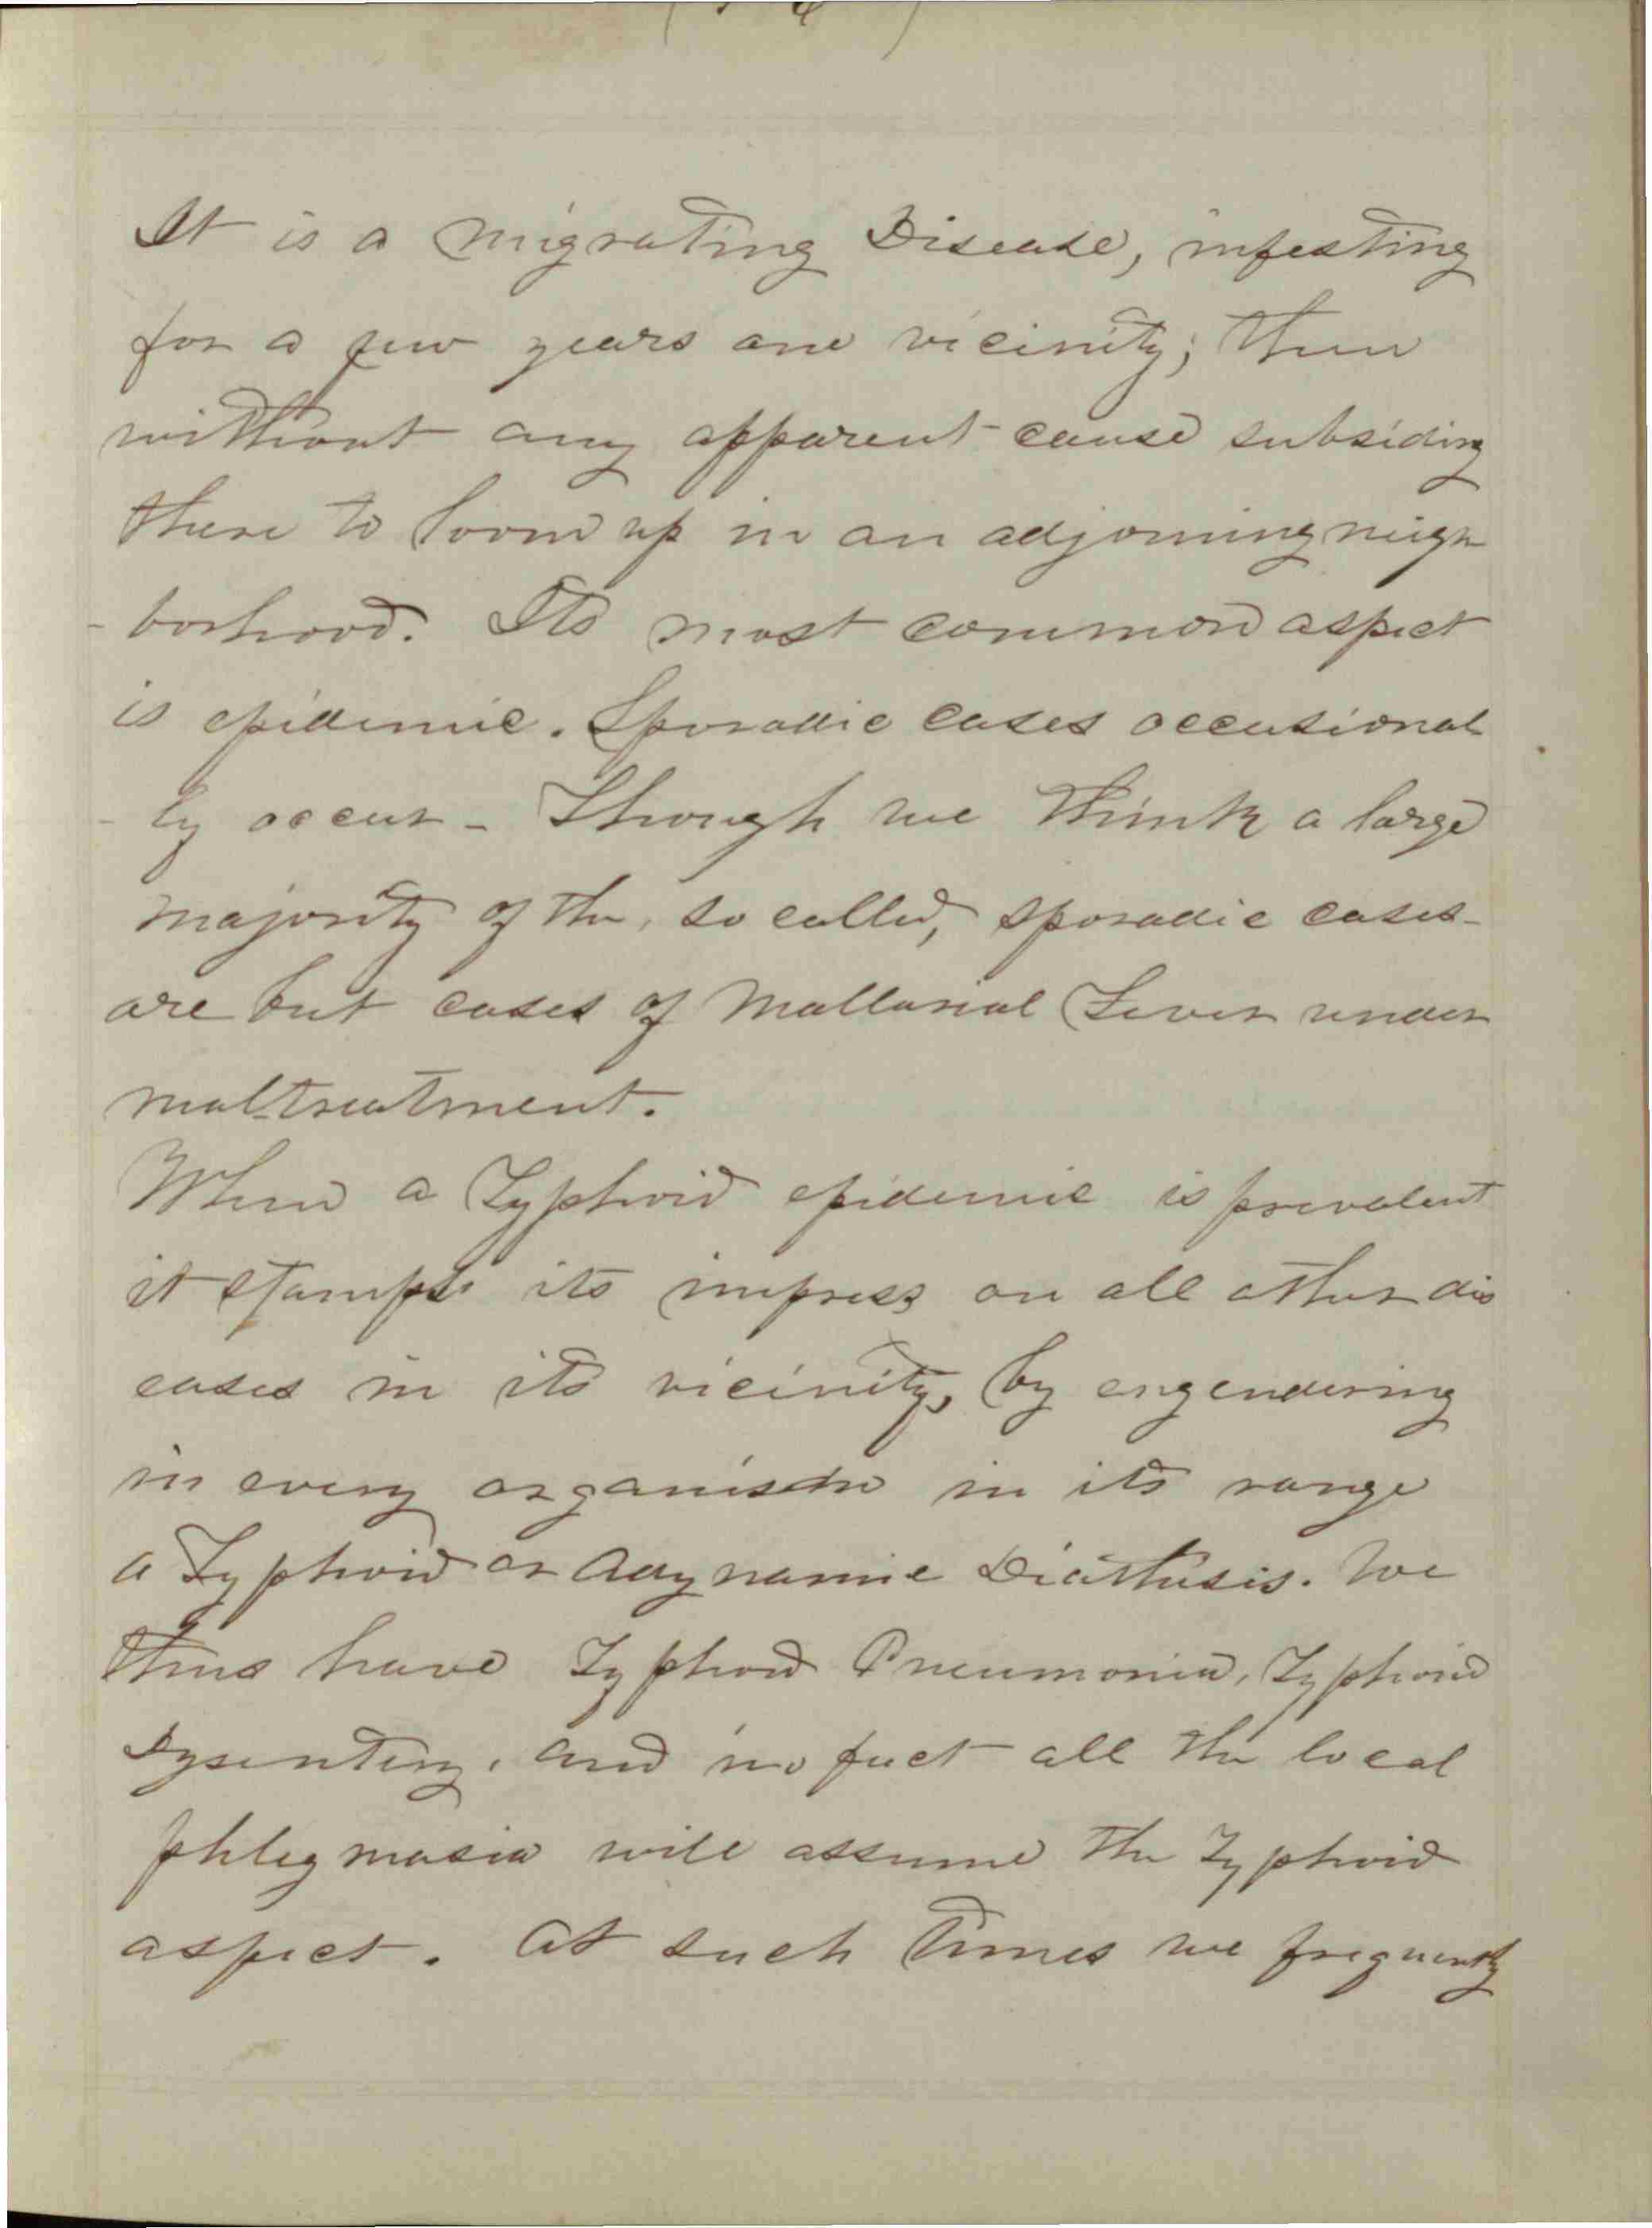 It is a migrating Disease, infesting
for a few years one vicinity; then
without any apparent cause subsiding
there to loom up in an adjoining neigh
- borhood. Its most common aspect
is epidemic. Sporadic cases occasional
- ly occur - Though we think a large
majority of the, so called, sporadic cases
are but cases of Mallarial Fever under
maltreatment.
When a Typhoid epidemic is prevalent
it stamps its impress on all other dis
eases in its vicinity, by engendering
in every organism in its range
a Typhoid or Adynamic Diathesis. We
thus have Typhoid Pneumonia, Typhoid
Dysentery, and in fact all the local
phlegmasia will assume the Typhoid
aspect. At such times we frequently